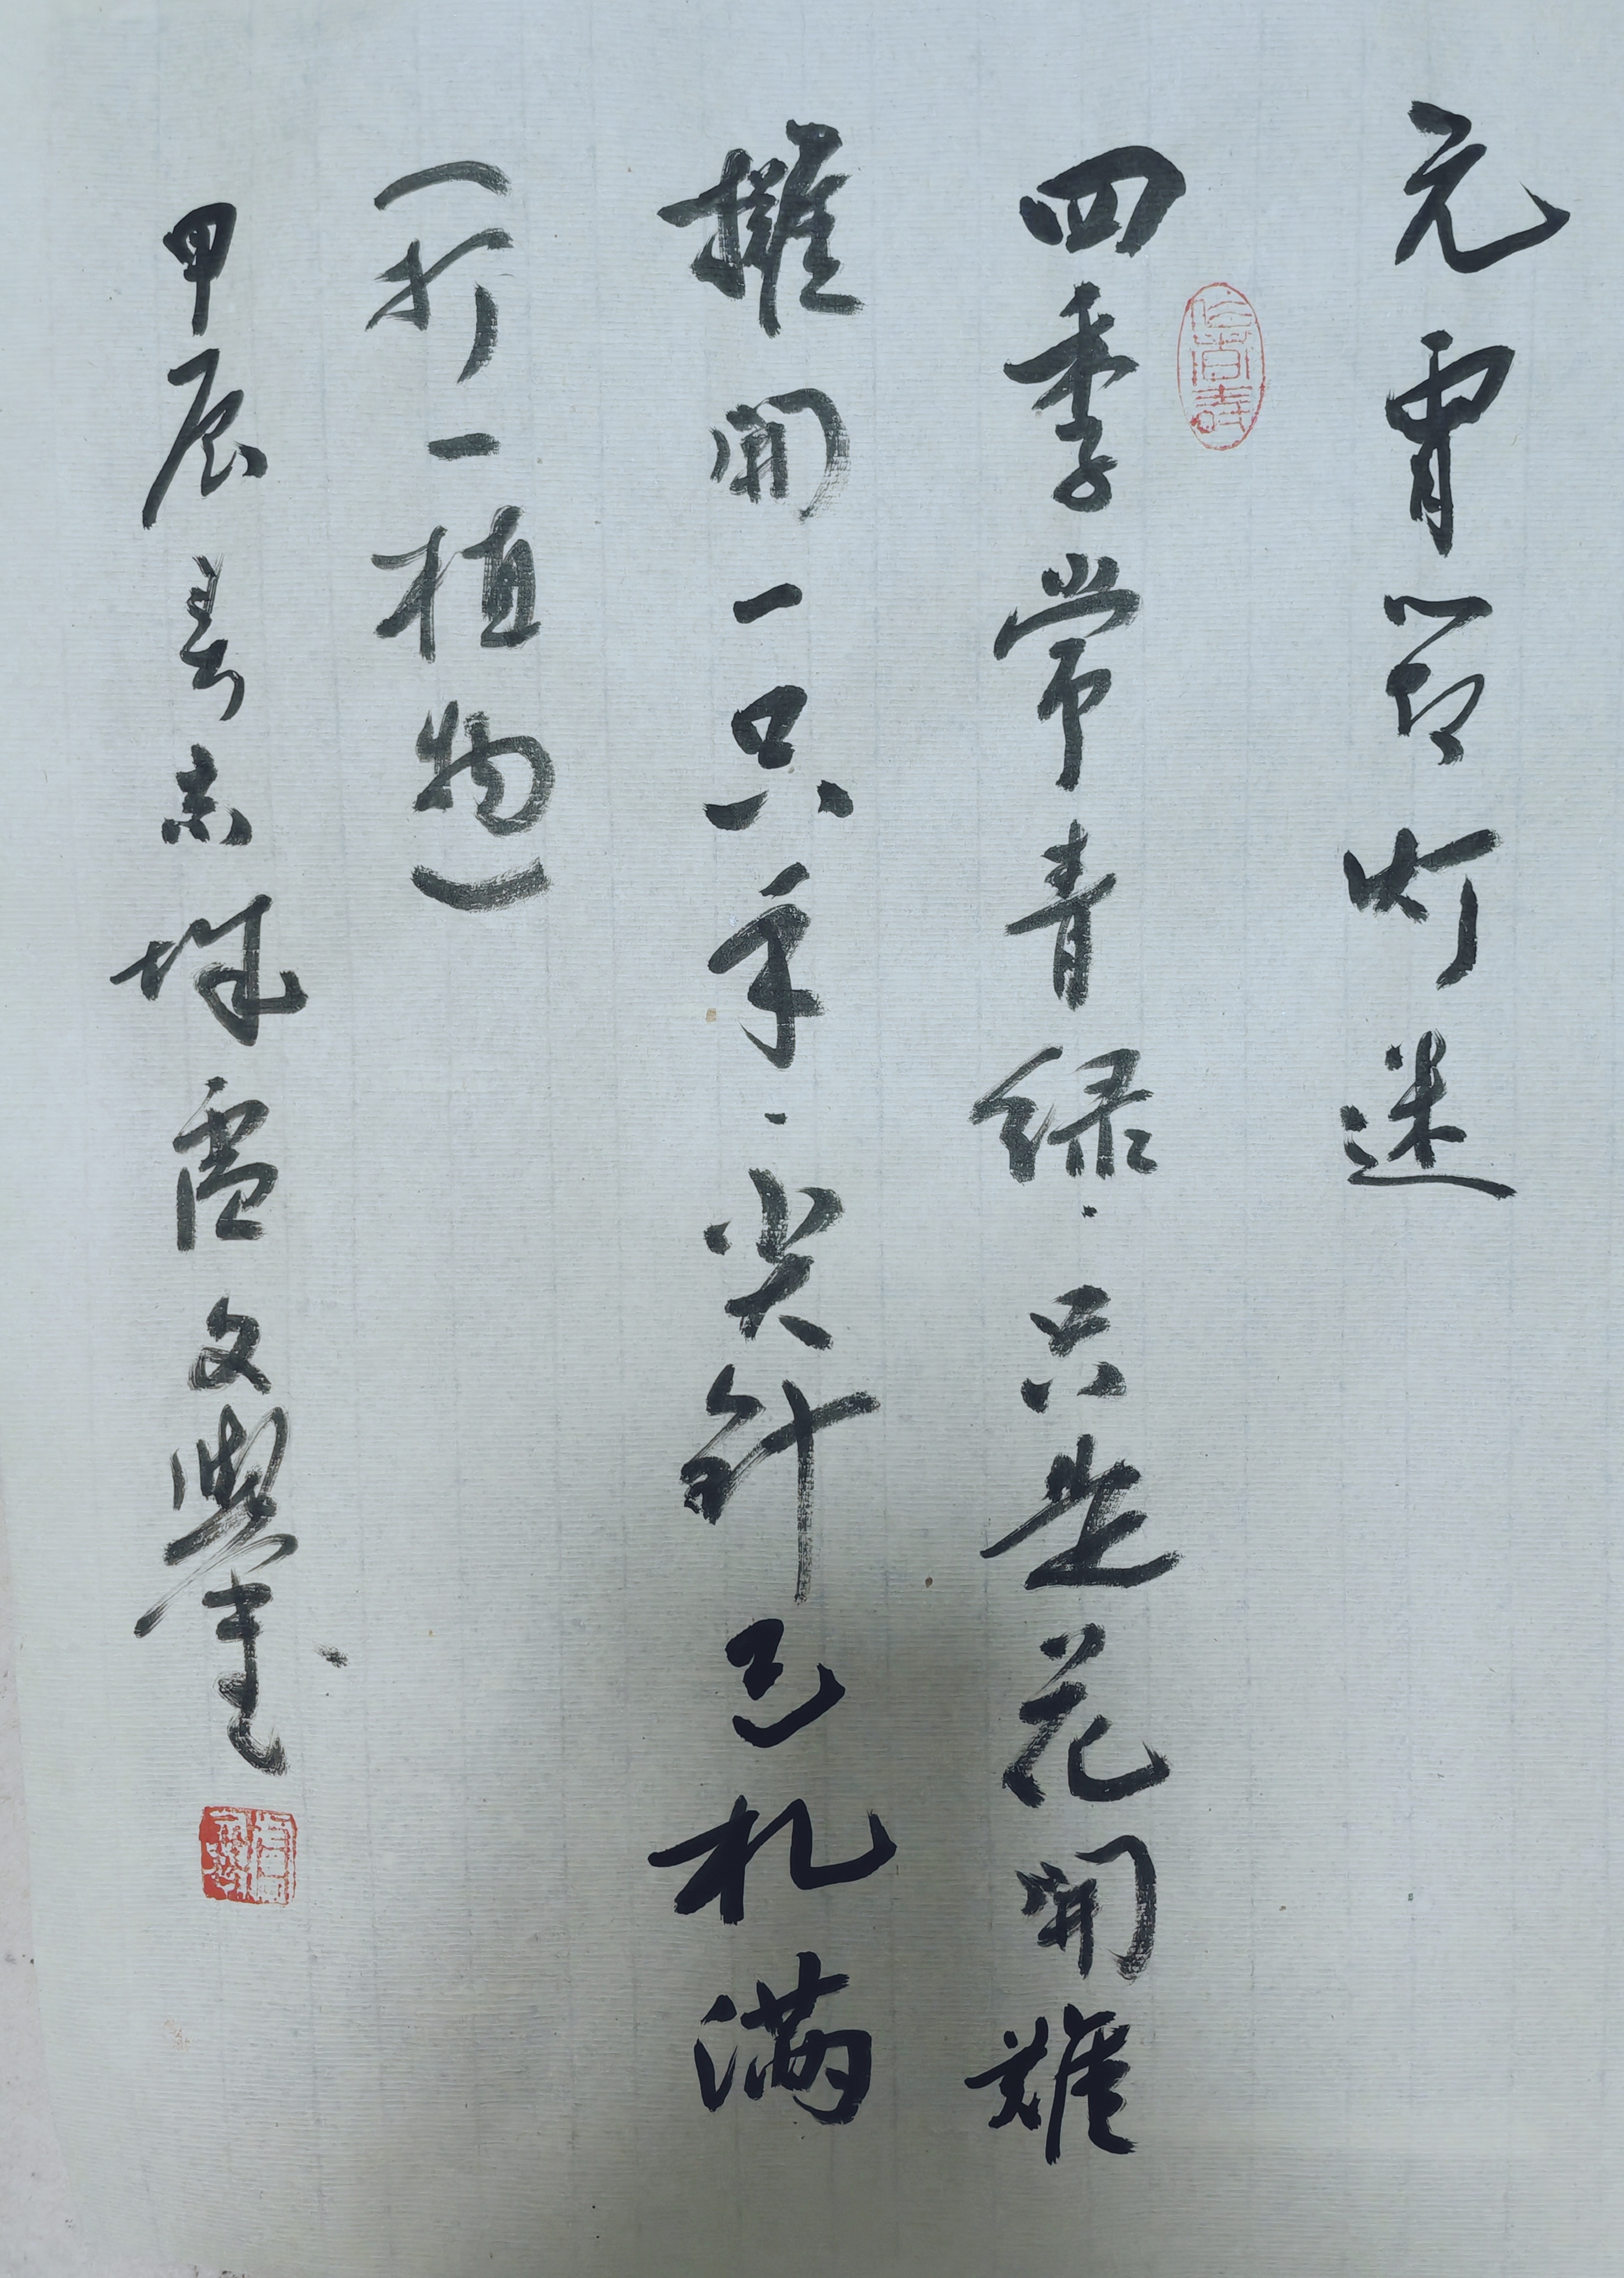 元宵节灯迷
四季常青绿·只是花開難
摊開一只手·尖针已札满
（打一植物）
甲辰春末 文學